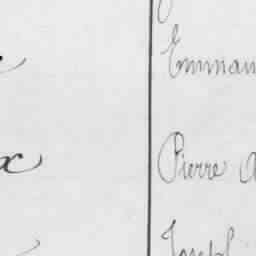 Emman
Pierre A
Joseph